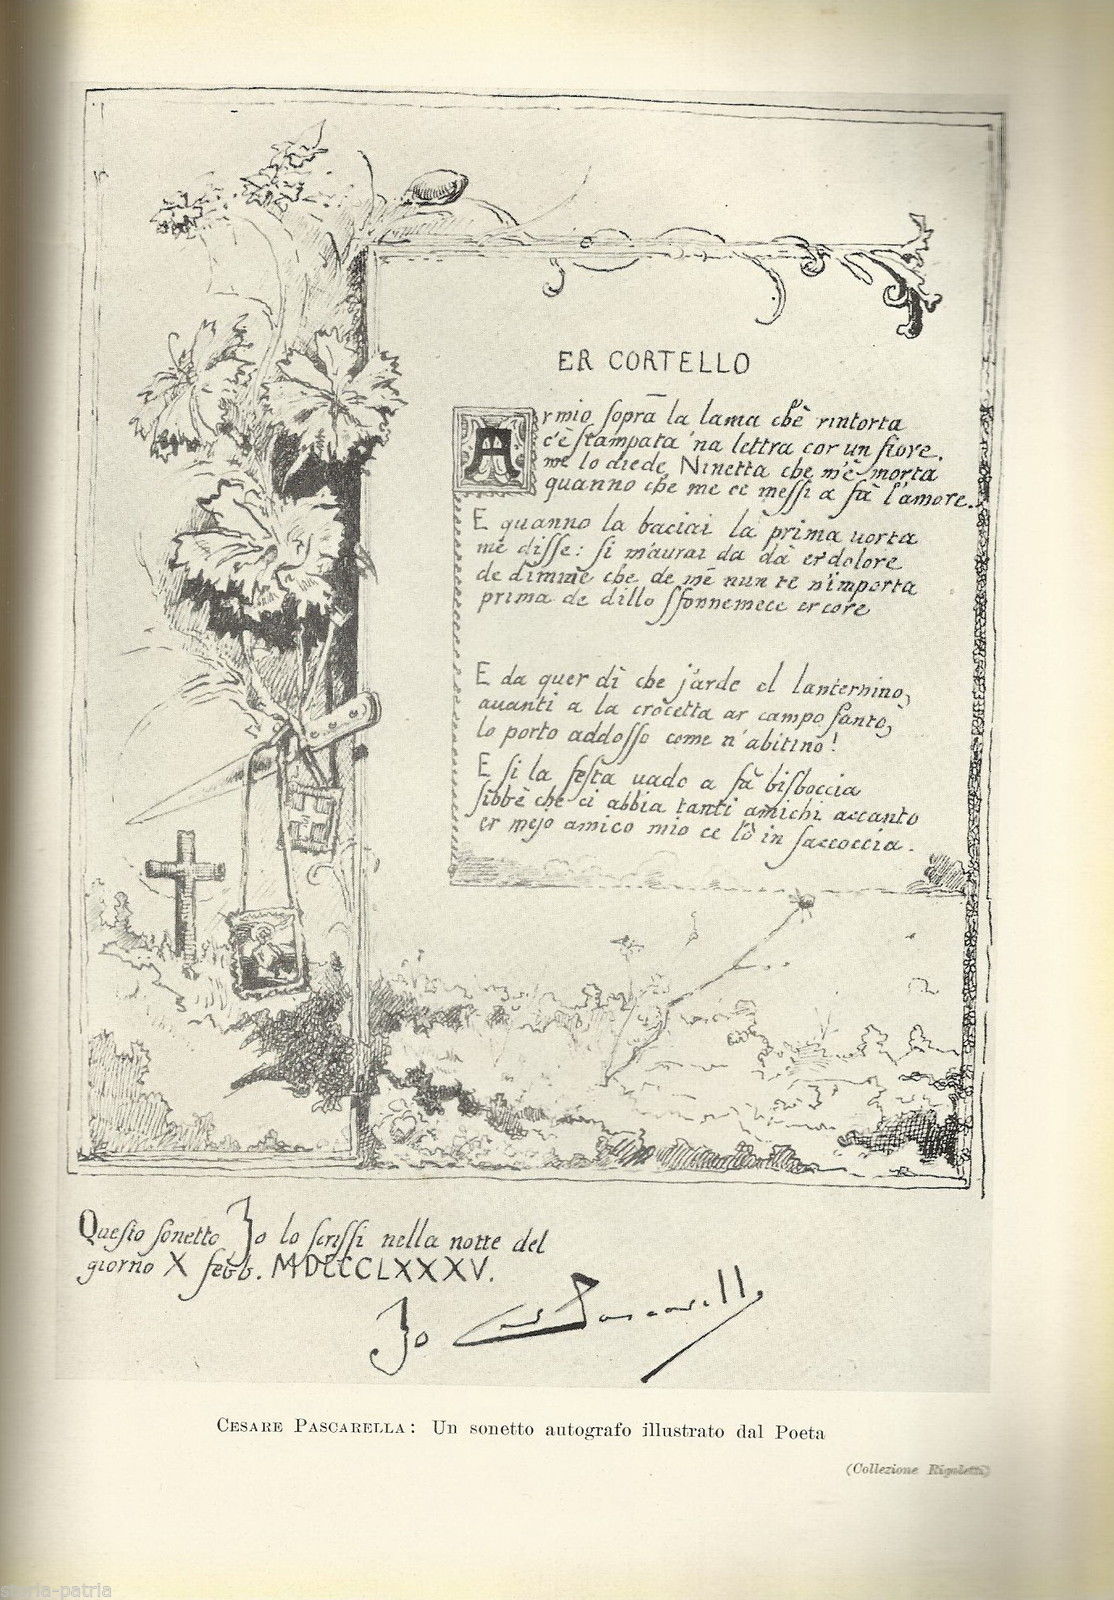 ER CORTELLO
Armio, sopra la lama ch'è rintorta
c'è stampata 'na lettra cor un fiore.
me lo diede Ninetta che m'è morta
quanno che me ce messi a fà l'amore.
E quanno la baciai la prima vorta
me disse: si m'aurai da dà er dolore
de dimme che de me nun te n'importa
prima de dillo sfonnemece er core
E da quer dì che j'arde el lanternino,
avanti a la crocetta ar campo santo,
lo porto addosso come n'abitino!
E si la festa vado a fà bisboccia
sibbè che ci abbia tanti amichi accanto
er mejo amico mio ce l'ò in saccoccia.
Questo sonetto Io lo scrissi nella notte del
giorno X febb. MDCCCLXXXV.
Io C. Pascarella
CESARE PASCARELLA: Un sonetto autografo illustrato dal Poeta
(Collezione Rigoletti)
storia-patria